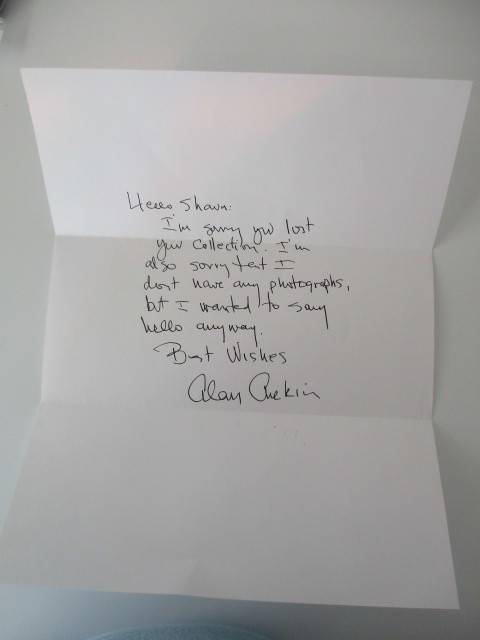 Hello Shawn:
I'm sorry you lost
your collection. I'm
also sorry that I
don't have any photographs,
but I wanted to say
hello anyway.
Best Wishes
Alan Arkin